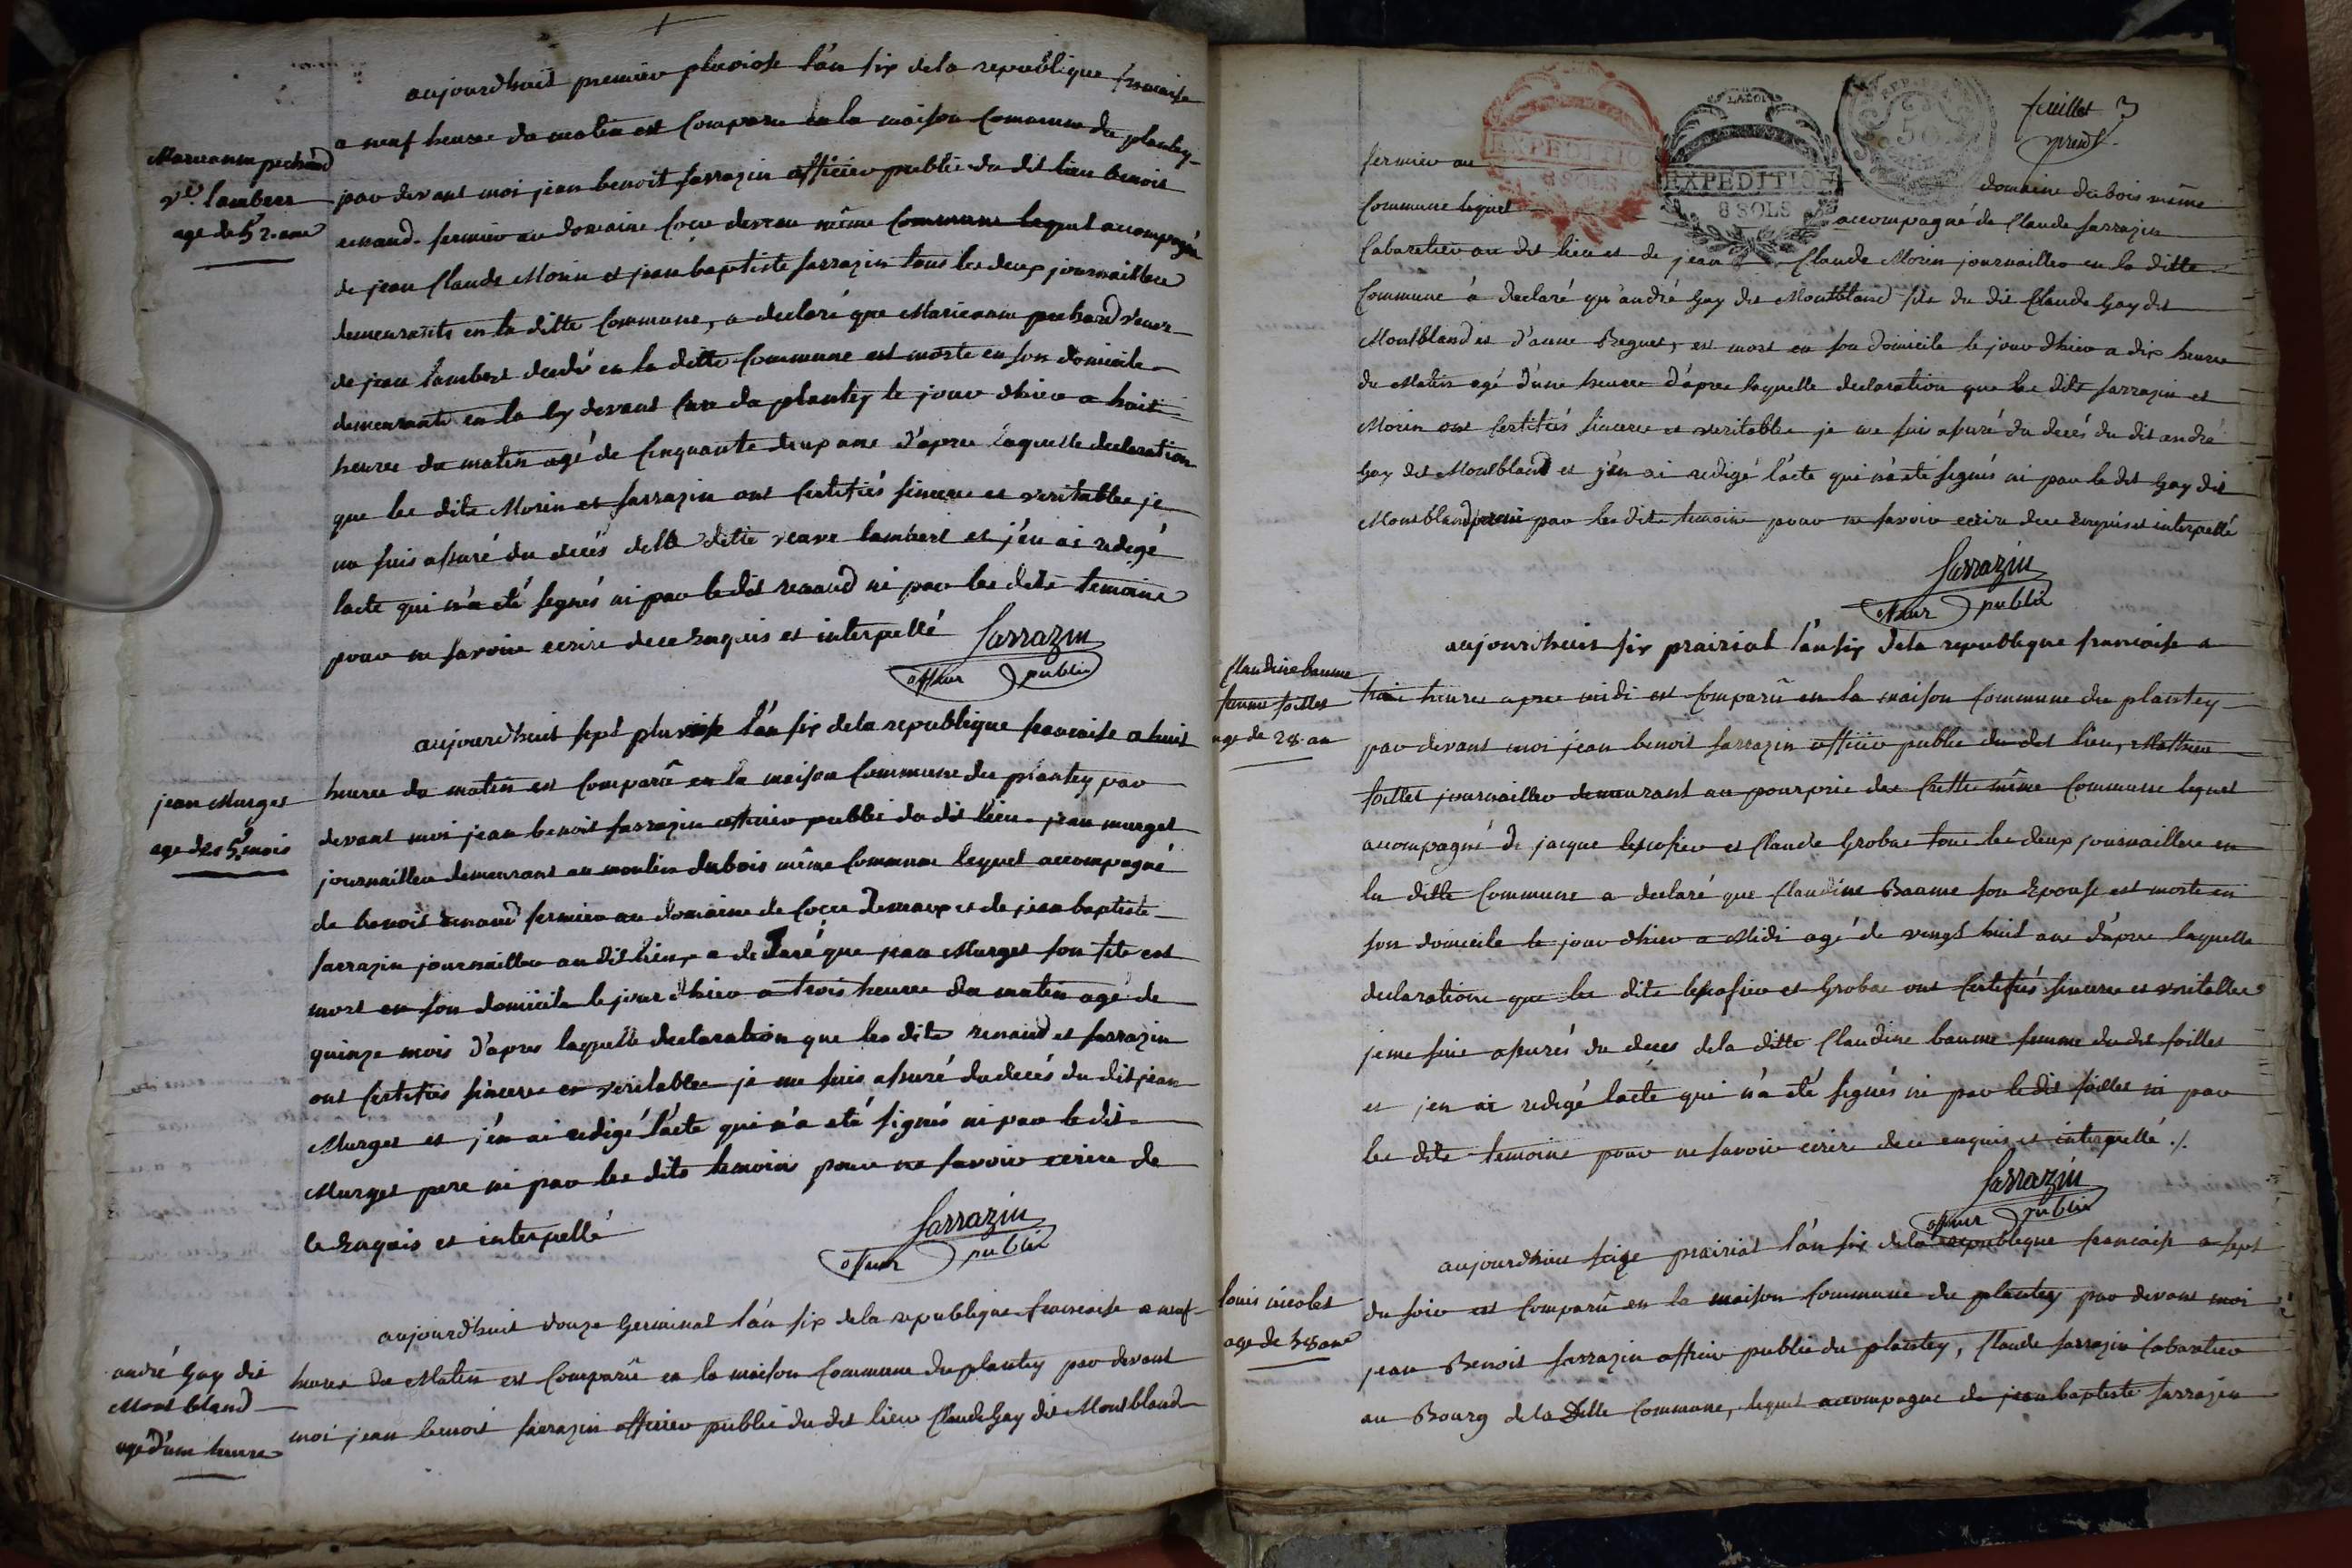 aujourdhuit premier pluviose l'an six dela republique francaise
a neuf heures du matin est Comparu en la maison Commune du plantey
Marieanne pechard
ve. lambert
age de 52. ans
par devant moi jean benoit sarrazin officier public du dit lieu benoit
renaud fermier au domaine même Commune lequel accompagné
de jean Claude Morin et jean baptiste sarrazin tous les deux journaillers
demeurants en la ditte Commune, a declaré que Marieanne pechard veuve
de jean lambert decedé en la ditte Commune est morte en son domicile
demeurante en la devant du plantey le jour dhier a huit
heures du matin agé de Cinquante deux ans d'apres laquelle declaration
que les dits Morin et sarrazin ont Certifiés sincere et veritable je
me suis assuré du decés de la ditte veuve lambert et j'en ai redigé
lacte qui n'a eté signés ni par le dit renaud ni par les dits temoins
pour ne savoir ecrire de ce Enquis et interpellé
Sarrazin
offcier public
aujourdhuit sept pluviose l'an six dela republique francaise a huit
jean Murget
age des 15 mois
heures du matin est Comparû en la maison Commune du plantey par
devant moi jean benoit sarrazin officier public du dit lieu jean murget
journaillier demeurant au moulin dubois même Commune lequel accompagné
de benoit renaud fermier au domaine de et de jean baptiste
sarrazin journaillier au dit lieu, a declaré que jean Murget son fils est
mort en son domicile le jour dhier a trois heures du matin agé de
quinze mois d'apres laquelle declaration que les dits renaud et sarrazin
ont Certifiés sincere et veritable je me suis assuré du decés du dit jean
Murget et j'en ai redigé l'acte qui n'a eté signés ni par le dit
Murget pere ni par les dits temoins pour ne savoir ecrire de
ce Enquis et interpellé
Sarrazin
offcier public
aujourdhuit douze Germinal l'an six dela republique francaise a neuf
andré Gay dit
Montbland
agé d'une heure
heures du Matin est Comparû en la maison Commune du plantey par devant
moi jean benoit sarrazin officier public du dit lieu Claude Gay dit Montbland
feuillet 3
EXPEDITION
8 SOLS
EXPEDITION
8 SOLS
fermier au domaine dubois même
Commune lequel accompagné de Claude sarrazin
Cabaretier au dit lieu et de jean Claude Morin journaillier en la ditte
Commune à declaré qu'andré Gay dit Montbland fils du dit Claude Gay dit
Montbland et d'anne Reguet, est mort en son domicile le jour dhier a dix heures
du Matin agé d'une heure d'apres laquelle declaration que les dits sarrazin et
Morin ont Certifiés sincere et veritable je me suis assuré du decés du dit andré
Gay dit Montbland et j'en ai redigé l'acte qui n'a eté signés ni par le dit Gay dit
Montbland ni par les dits temoins pour ne savoir ecrire de ce Enquis et interpellé
Sarrazin
offcier public
aujourdhuit six prairial l'an six dela republique francaise a
Claudine baume
femme foillet
age de 28. ans
trois heures apres midi est Comparû en la maison Commune du plantey
par devant moi jean benoit sarrazin officier public du dit lieu, Mathieu
foillet journaillier demeurant au pourprie de Cette même Commune lequel
accompagné de jacque lescosier et Claude Grobas tous les deux journailliers en
la ditte Commune a declaré que Claudine Baume son Epouse est morte en
son domicile le jour dhier a Midi agé de vingt huit ans d'apres laquelle
declaration que les dits lescosier et Grobas ont Certifiés sincere et veritables
je me suis assurés du deces dela ditte Claudine baume femme du dit foillet
et jen ai redigé lacte qui n'a eté signés ni par le dit foillet ni par
les dits temoins pour ne savoir ecrire de ce enquis et interpellé ./.
Sarrazin
offcier public
aujourdhuit seize prairial l'an six dela republique francaise a sept
louis nicolet
age de 38 ans
du soir est Comparû en la maison Commune du plantey par devant moi
jean Benoit sarrazin officier public du plantey, Claude sarrazin Cabaretier
au Bourg dela ditte Commune, lequel accompagné de jean baptiste sarrazin